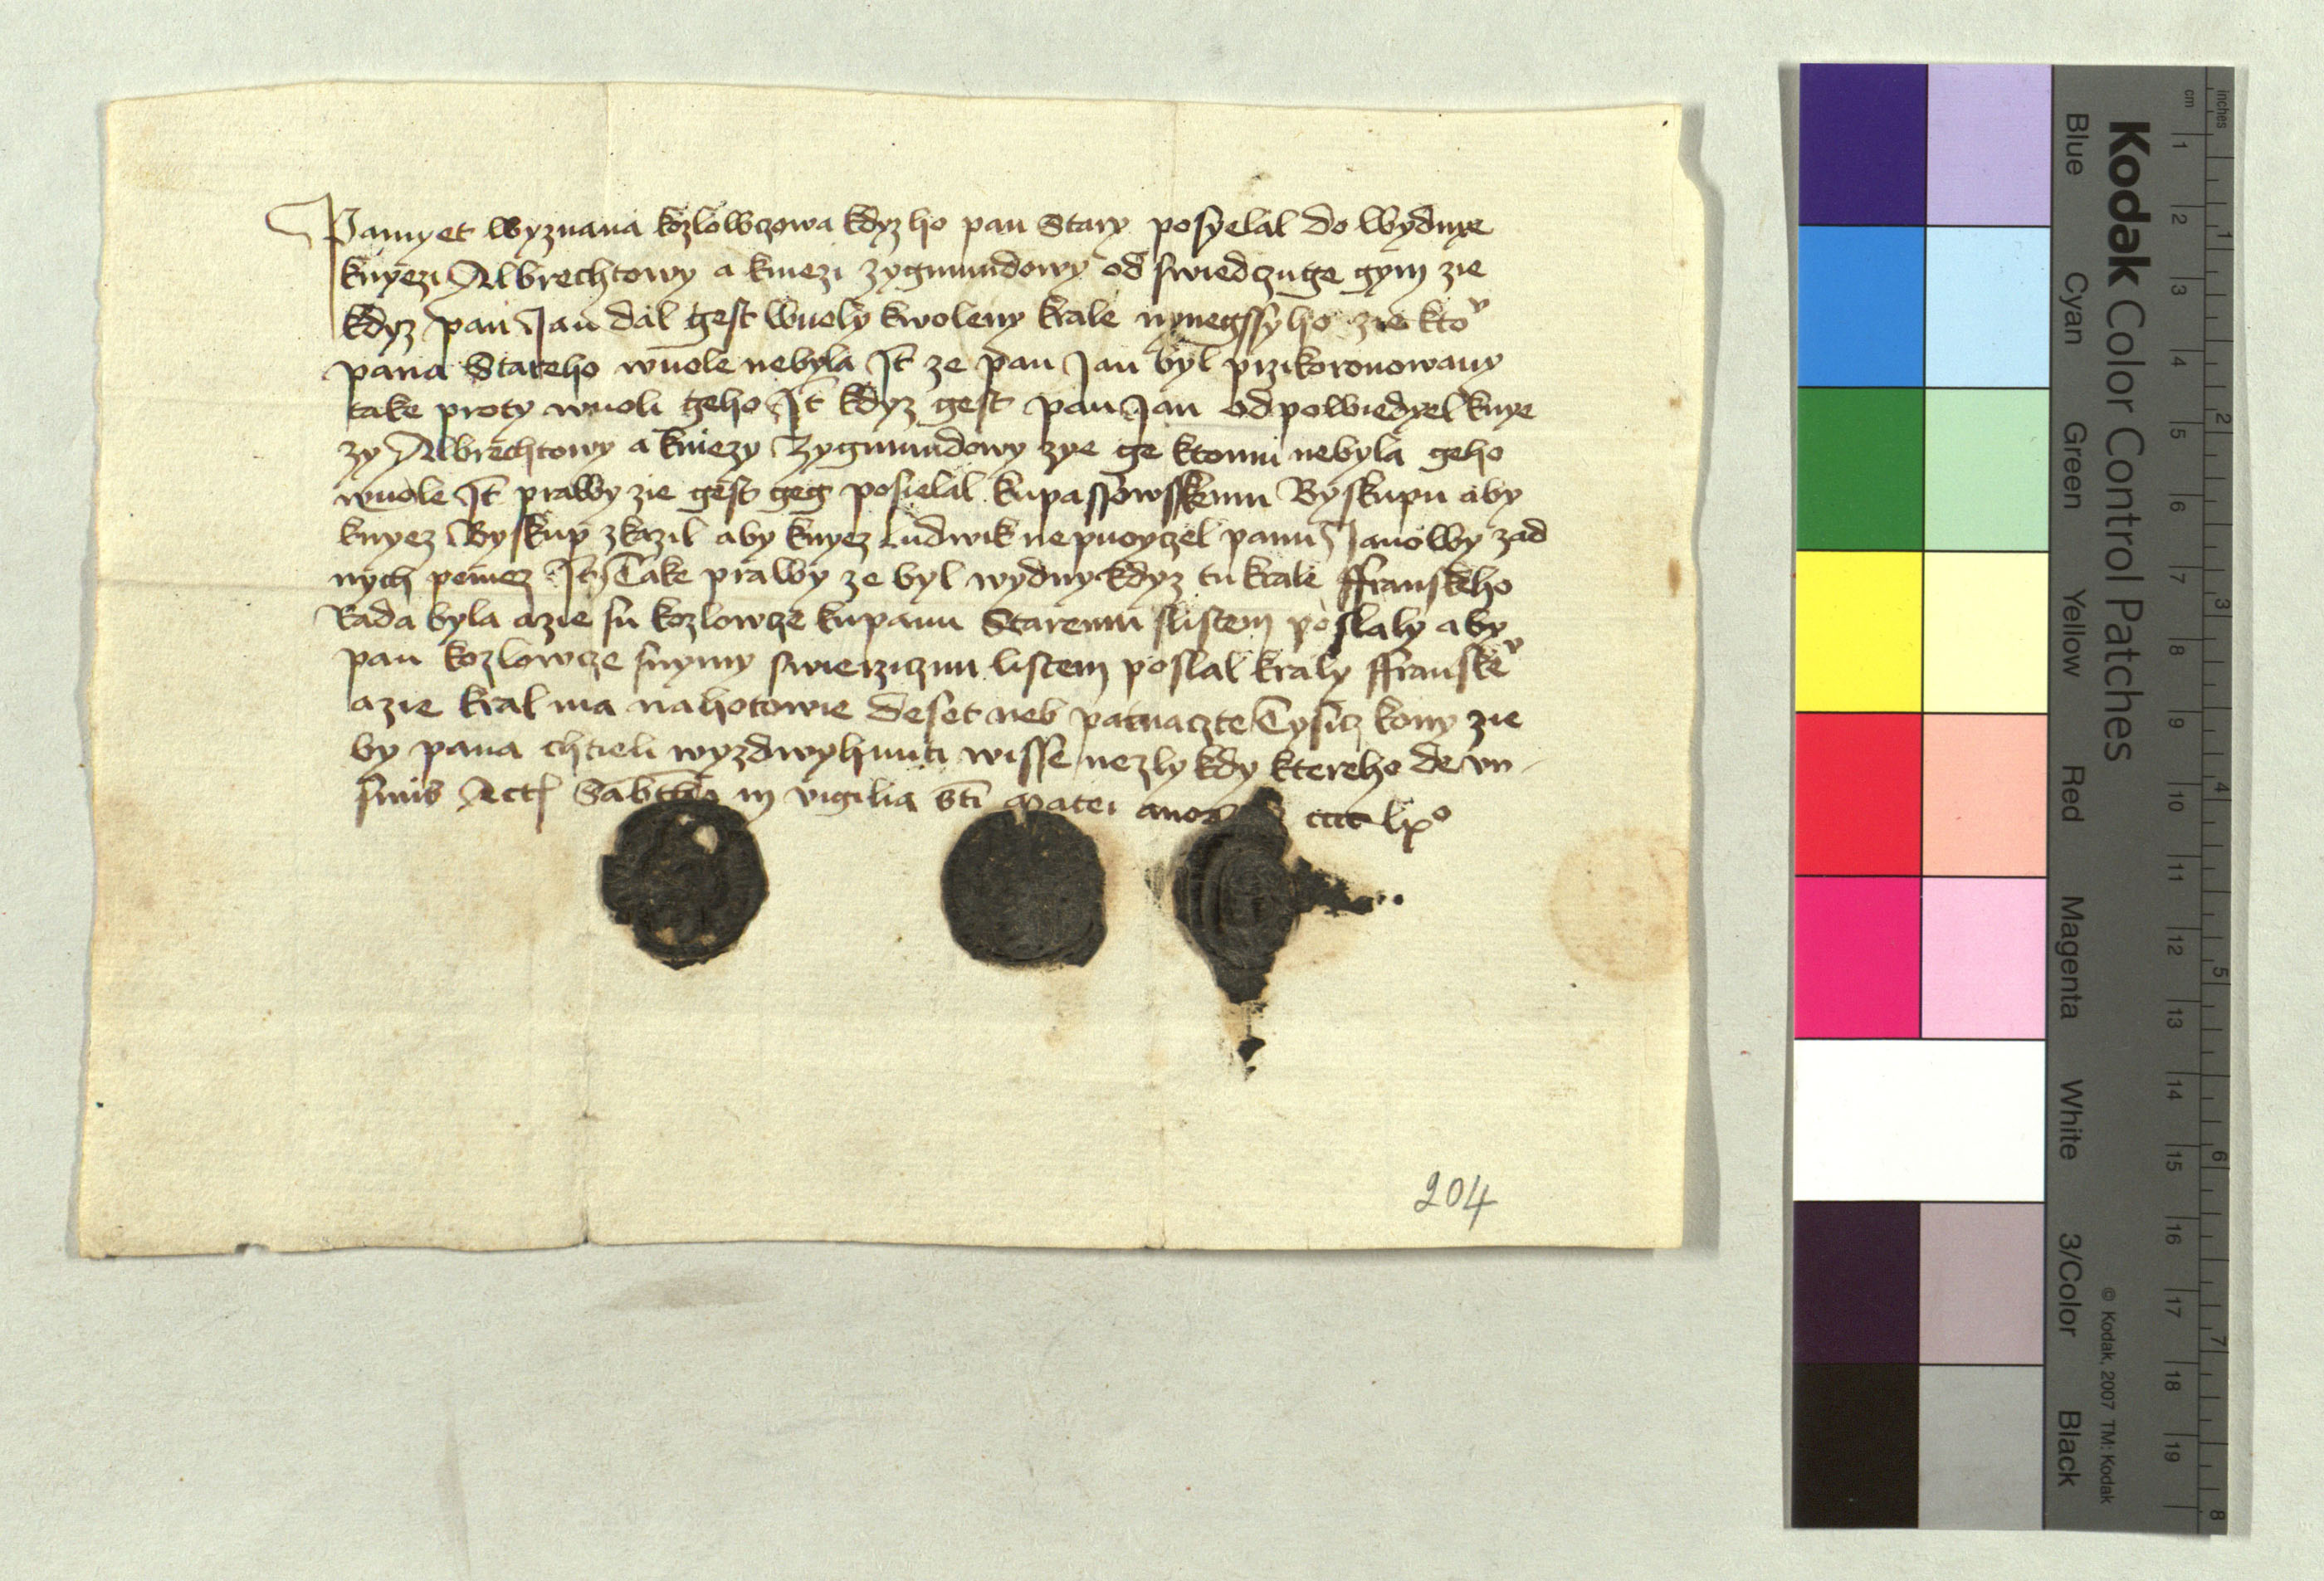 Pamyet wyznana kozlowczowa kdyz ho pan Stary posyelal do wydnye
knyezi Albrechtowy a kniezi zygmundowy od swiedczuge gym zie
kdyz pan Jan dal gest wuoly kwoleny krale nynegssyho zie ktoᵛ
pana Stareho wuole nebyla Jt ze pan Jan byl przikoronowany
take proty wuoli geho Jt kdyz gest pan Jan odpowiedyel knye
zy Albrechtowy a kniezy Zygmundowy zye ge ktomu nebyla geho
wuole Jt prawy zie gest geg posielal kupassowsskemu Byskupu aby
knyez Byskup zkazil aby knyez ludwik nepuoyczel panu Janowy zad
nych peniez Jt Take prawy ze byl wydny kdyz tu krale ffranskeho
Rada byla azie su kozlowcze kupanu Staremu slistem poslaly aby
pan kozlowcze snymy swierziczim listem poslal kraly ffranskeᵛ
azie kral ma nahotowie deset neb patnaczte Tysicz kony zie
by pana chtieli wyzdwyhnuti wisse nezly kdy ktereho de vn
sinis Act Sabbato in vigilia sti Matei anor cccc lxº
204
Kodak Color Control Patches
Blue Cyan Green Yellow Red Magenta White 3/Color Black
© Kodak, 2007 TM: Kodak
cm 1 2 3 4 5 6 7 8 9 10 11 12 13 14 15 16 17 18 19
inches 1 2 3 4 5 6 7 8